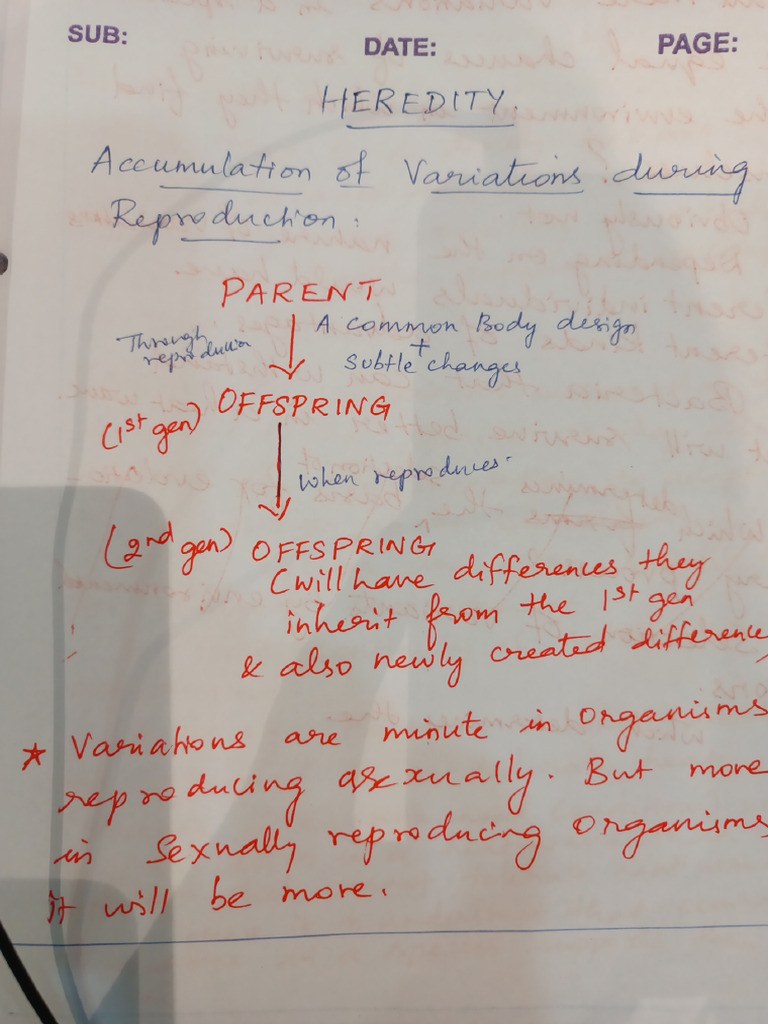 SUB:
DATE:
PAGE:
HEREDITY.
Accumulation of Variations during
Reproduction:
PARENT
Through
reproduction
A common Body design
+
Subtle changes
(1st gen) OFFSPRING
when reproduces.
(2nd gen) OFFSPRING
(will have differences they
inherit from the 1st gen
& also newly created difference
* Variations are minute in organisms
reproducing asexually. But more
in Sexually reproducing organisms
it will be more.